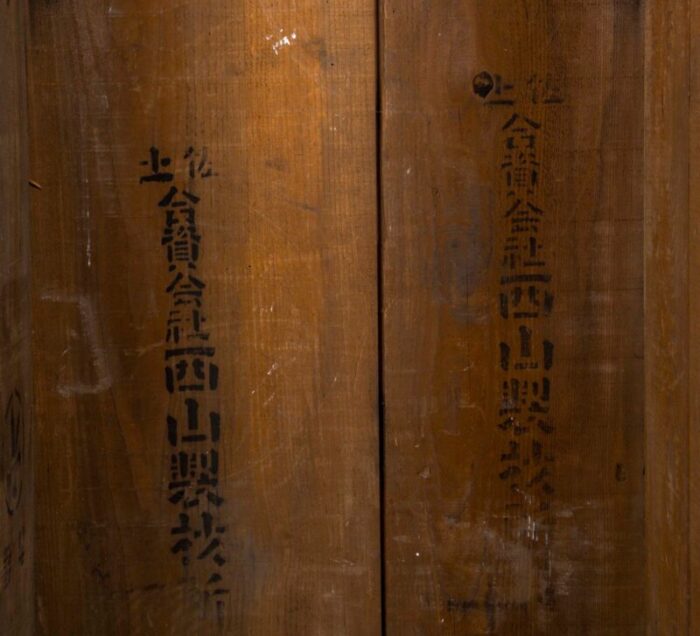 土佐
合資会社西山製材
土佐
合資会社西山製材所